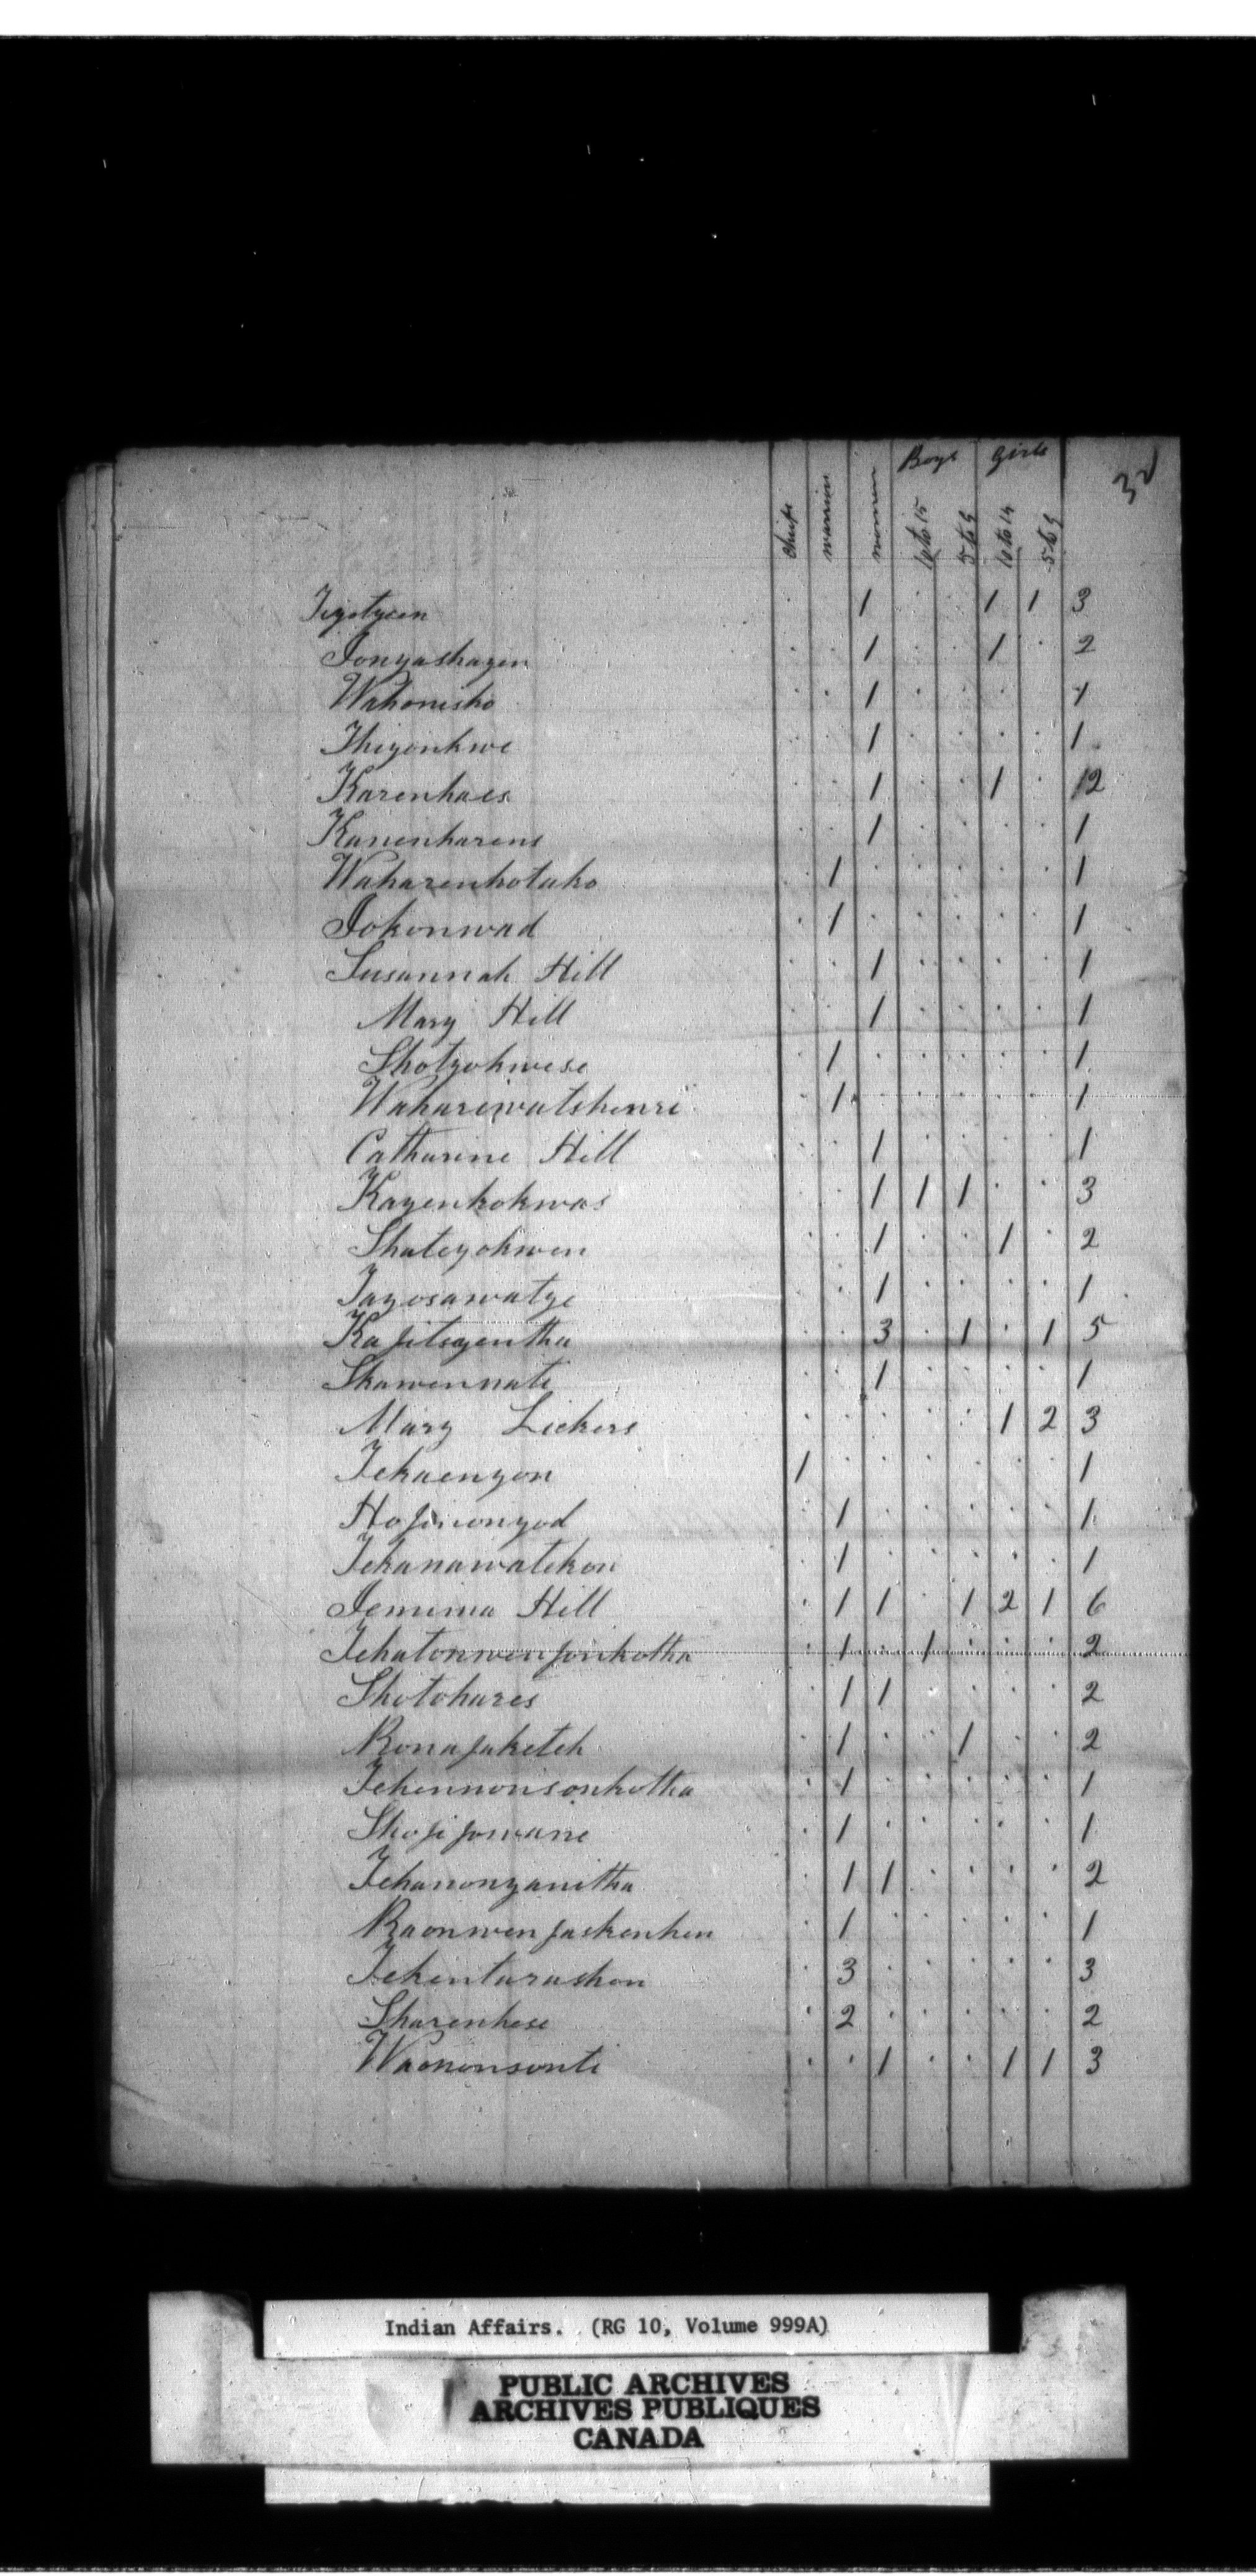 32
Boys Girls
chiefs warriors women 10 to 15 5 to 9 10 to 14 5 to 9
Tegotyeen . . 1 . . 1 1 3
Jonyashagen . . 1 . . 1 . 2
Wahonisho . . 1 . . . . 1
Thiyonkwe . . 1 . . . . 1
Karenhaes . . 1 . . 1 . 12
Kanenharens . . 1 . . . . 1
Waharenhotako . 1 . . . . . 1
Jokonwad . 1 . . . . . 1
Susannah Hill . . 1 . . . . 1
Mary Hill . . 1 . . . . 1
Shotyohwese . 1 . . . . . 1
Wahariwatshenri . 1 . . . . . 1
Catharine Hill . . 1 . . . . 1
Kayenkokwas . . 1 1 1 . . 3
Shateyohwen . . 1 . . 1 . 2
Tayosawatye . . 1 . . . . 1
Kajitsyentha . . 3 . 1 . 1 5
Skawennati . . 1 . . . . 1
Mary Lickers . . . . . 1 2 3
Tekaenyon 1 . . . . . . 1
Hojinonyod . 1 . . . . . 1
Tekanawatekon . 1 . . . . . 1
Jemima Hill . 1 1 . 1 2 1 6
Tehatonwenjonkotha . 1 . 1 . . . 2
Shotohares . 1 1 . . . . 2
Ronajaketeh . 1 . . 1 . . 2
Tehennonsonkotha . 1 . . . . . 1
Shojijowane . 1 . . . . . 1
Tehanonyanitha . 1 1 . . . . 2
Raonwenjaskenhen . 1 . . . . . 1
Tekentarashon . 3 . . . . . 3
Sharenhese . 2 . . . . . 2
Waononsonti . . 1 . . 1 1 3
Indian Affairs. (RG 10, Volume 999A)
PUBLIC ARCHIVES
ARCHIVES PUBLIQUES
CANADA